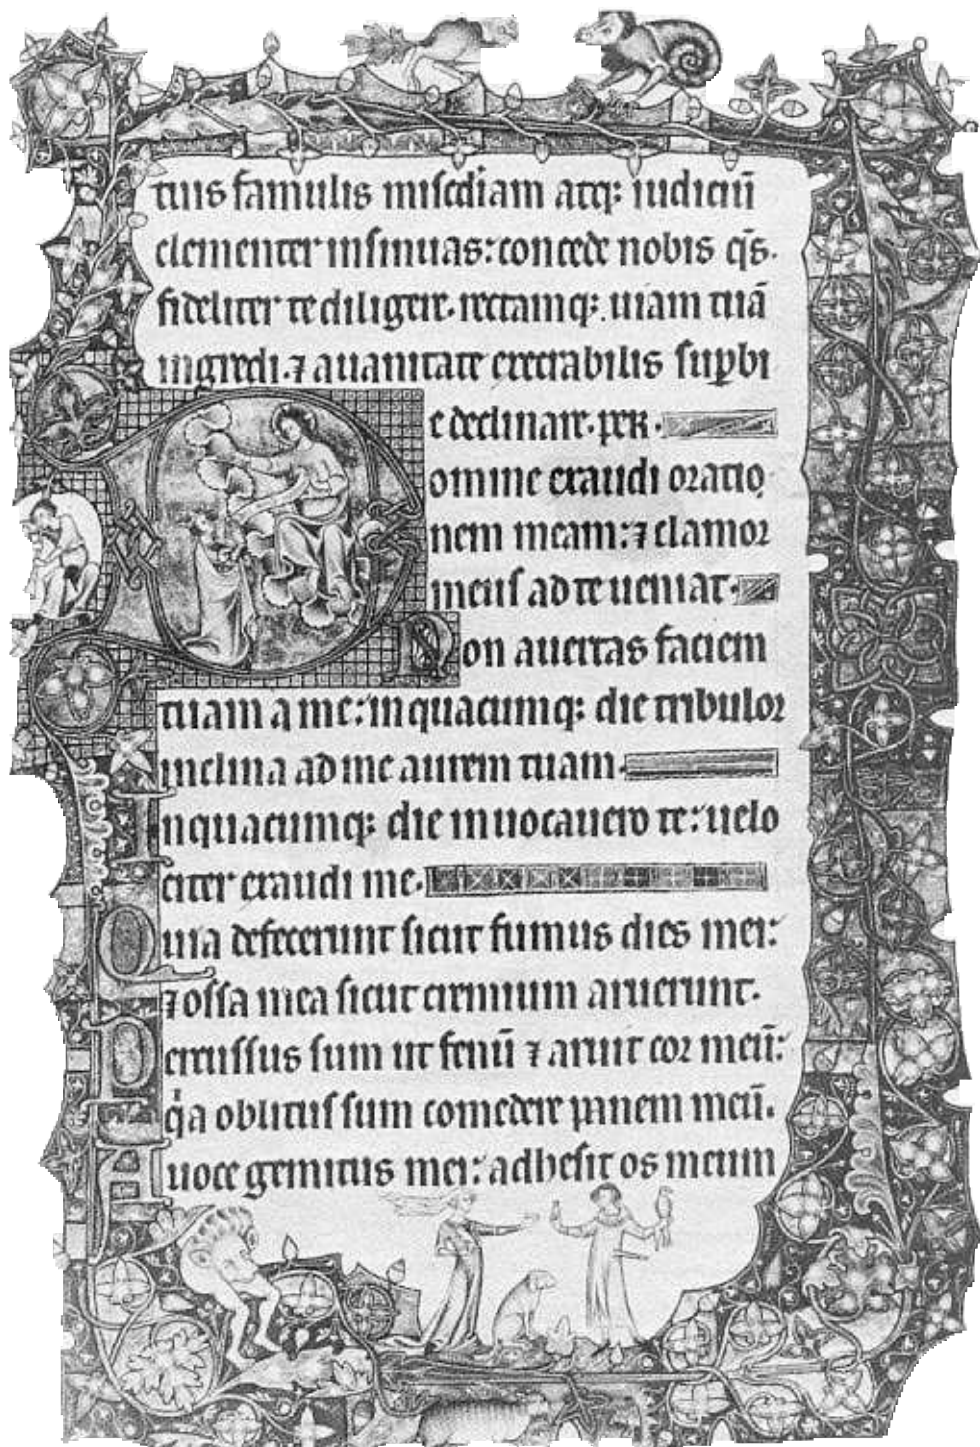 tuis famulis misc̄diam atq; iudiciū
clementer insinuas: concede nobis q̄s.
fideliter te diligere. rectamq; uiam tuā
ingredi. ⁊ auanitate execrabilis suꝑbi
e declinare. per.
Domine exaudi oratio
nem meam: ⁊ clamor
meus ad te ueniat.
Non auertas faciem
tuam a me: in quacumq; die tribulor
inclina ad me aurem tuam.
In quacumq; die inuocauero te: uelo
citer exaudi me.
Quia defecerunt sicut fumus dies mei:
⁊ ossa mea sicut cremium aruerunt.
Percussus sum ut fenū ⁊ aruit cor meū:
q̇a oblitus sum comedere panem meū.
A uoce gemitus mei: adhesit os meum